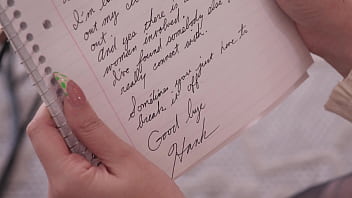 I'm lo
out my
out.
And yes there is
woman involved
I've found somebody else I
really connect with.
Sometimes you just have to
break it off
Good bye
Hank